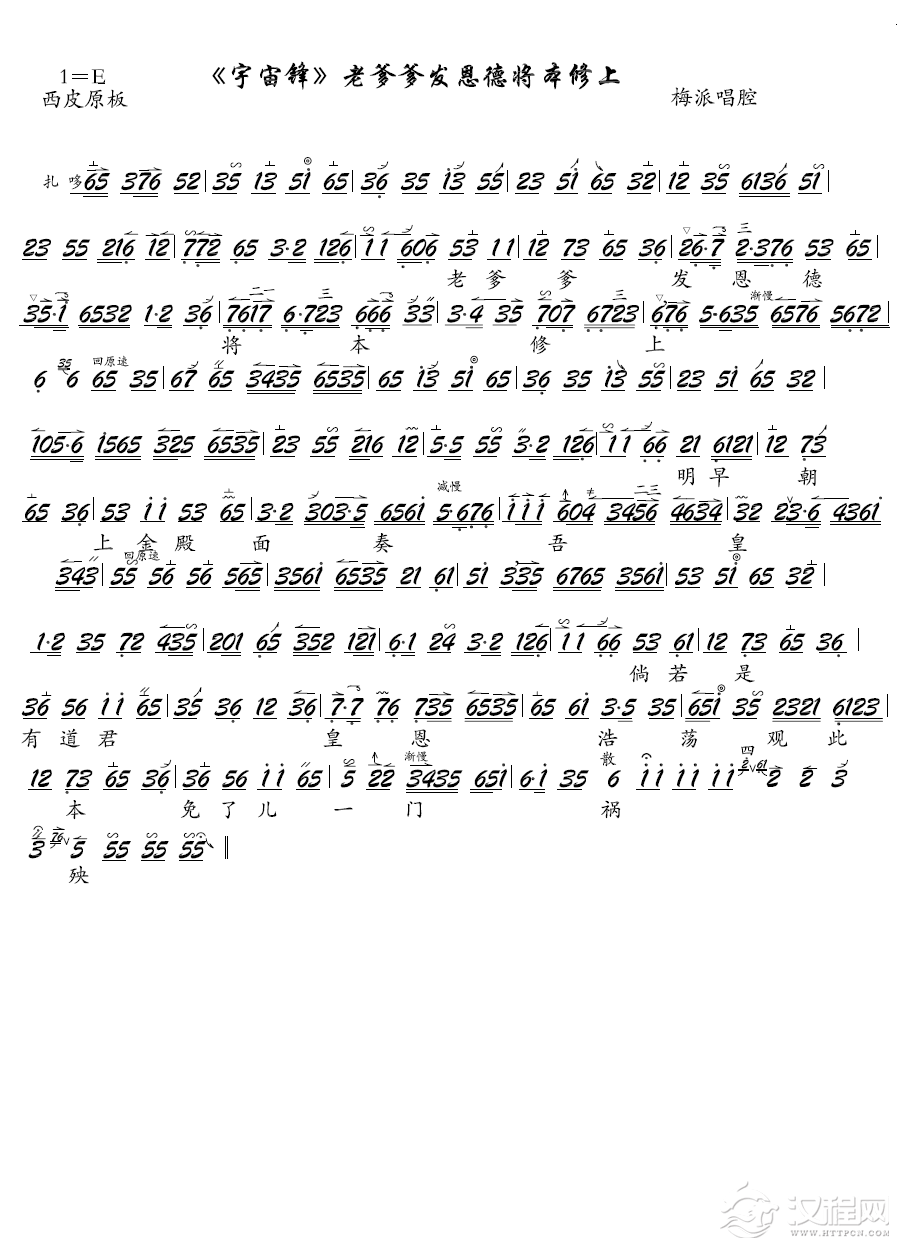 1=E 《宇宙锋》老爹爹发恩德将本修上
西皮原板 梅派唱腔
扎 哆 65 376 52 | 35 13 51 65 | 36 35 13 55 | 23 51 65 32 | 12 35 6136 51 |
23 55 216 12 | 772 65 3·2 126 | 11 606 53 11 | 12 73 65 36 | 26·7 2·376 53 65 |
老 爹 爹 发 恩 德
35·1 6532 1·2 36 | 7617 6·723 666 33 | 3·4 35 707 6723 | 676 5·635 渐慢 6576 5672 |
将 本 修 上
6 35 6 回原速 65 35 | 67 65 3435 6535 | 65 13 51 65 | 36 35 13 55 | 23 51 65 32 |
105·6 1565 325 6535 | 23 55 216 12 | 5·5 55 3·2 126 | 11 66 21 6121 | 12 73
明 早 朝
65 36 | 53 11 53 65 | 3·2 303·5 6561 减慢 5·676 | 111 604 3456 4634 | 32 23·6 4361
上 金 殿 面 奏 吾 皇
343 | 回原速 55 56 56 565 | 3561 6535 21 61 | 51 335 6765 3561 | 53 51 65 32
1·2 35 72 435 | 201 65 352 121 | 6·1 24 3·2 126 | 11 66 53 61 | 12 73 65 36 |
倘 若 是
36 56 11 65 | 35 36 12 36 | 7·7 76 735 6535 | 65 61 3·5 35 | 651 35 2321 6123
有 道 君 皇 恩 浩 荡 观 此
12 73 65 36 | 36 56 11 65 | 5 22 渐慢 3435 651 | 6·1 35 散 6 11 11 四 2 2 3
本 免 了 儿 一 门 祸
3 76 5 55 55 55 ‖
殃
汉程网
WWW.HTTPCN.COM